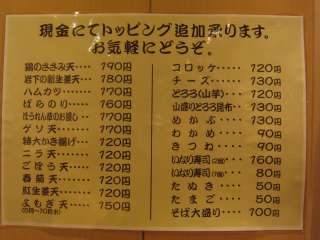 現金にてトッピング追加承ります。
お気軽にどうぞ。
鶏のささみ天・・・・790円
岩下の新生姜天・・・780円
ハムカツ・・・・770円
ばらのり・・・・760円
ほうれん草のお浸し・・770円
ゲソ天・・・・770円
特大かき揚げ・・720円
ニラ天・・・・720円
ごぼう天・・・720円
春菊天・・・・720円
紅生姜天・・・720円
よもぎ天・・・750円
コロッケ・・・・720円
チーズ・・・・730円
とろろ(山芋)・・720円
山盛りとろろ昆布・・730円
めかぶ・・・・730円
わかめ・・・・90円
きつね・・・・90円
いなり寿司(2個)・・760円
いなり寿司(1個)・・80円
たぬき・・・・50円
たまご・・・・50円
そば大盛り・・・700円